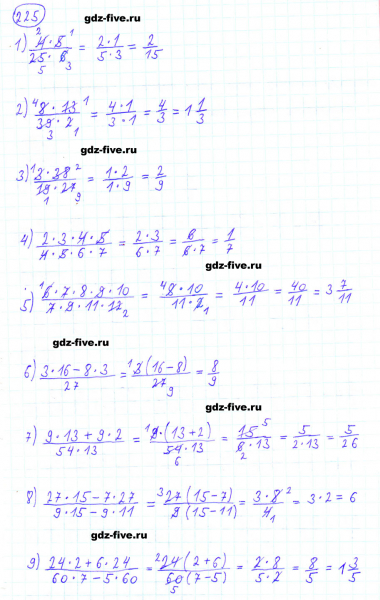 225
gdz-five.ru
1) 4·5 / 25·6 = 2·1 / 5·3 = 2/15
2) 8·13 / 39·2 = 4·1 / 3·1 = 4/3 = 1 1/3
gdz-five.ru
3) 3·38 / 19·27 = 1·2 / 1·9 = 2/9
4) 2·3·4·5 / 4·5·6·7 = 2·3 / 6·7 = 6 / 6·7 = 1/7
gdz-five.ru
5) 6·7·8·9·10 / 7·9·11·12 = 8·10 / 11·2 = 4·10 / 11 = 40/11 = 3 7/11
gdz-five.ru
6) 3·16-8·3 / 27 = 3(16-8) / 27 = 8/9
gdz-five.ru
7) 9·13+9·2 / 54·13 = 9·(13+2) / 54·13 = 15 / 6·13 = 5 / 2·13 = 5/26
8) 27·15-7·27 / 9·15-9·11 = 27(15-7) / 9(15-11) = 3·8 / 4 = 3·2 = 6
gdz-five.ru
9) 24·2+6·24 / 60·7-5·60 = 24(2+6) / 60(7-5) = 2·8 / 5·2 = 8/5 = 1 3/5